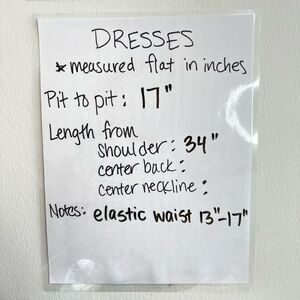 DRESSES
* measured flat in inches
Pit to pit: 17"
Length from
shoulder: 34"
center back:
center neckline:
Notes: elastic waist 13"-17"